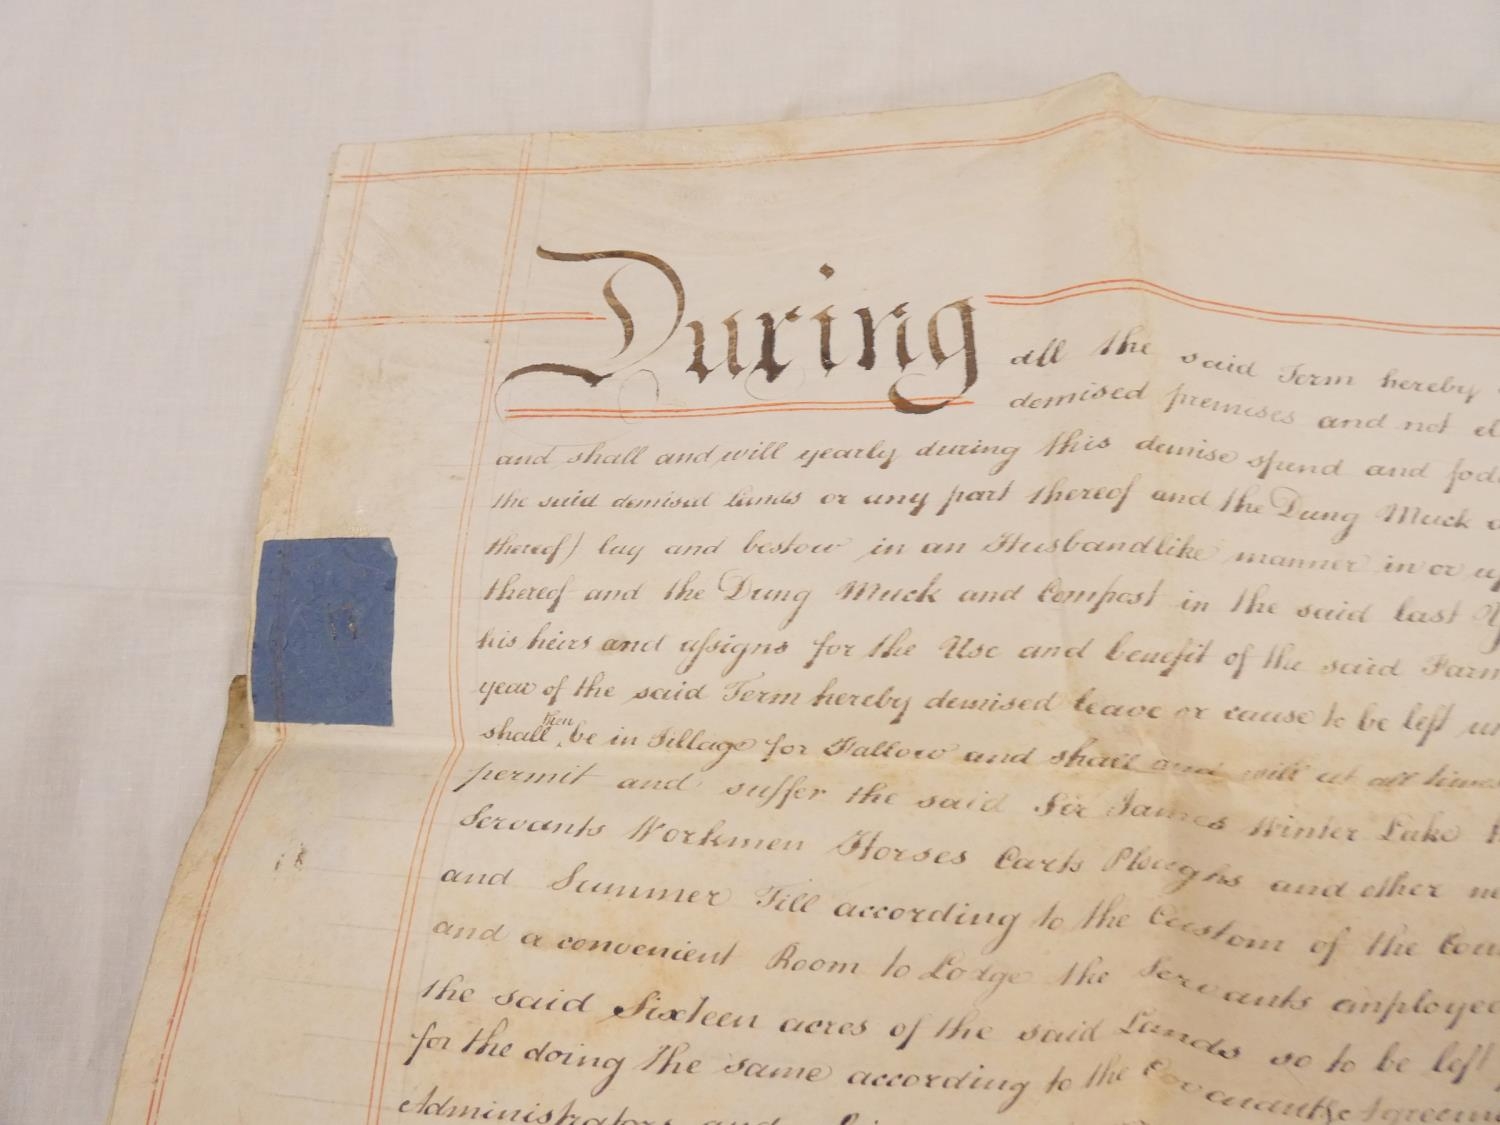 During all the said Term hereby
demised premises and not
and shall and will yearly during this demise spend and
the said demised Lands or any part thereof and the Dung Muck
thereof) lay and bestow in an Husbandlike manner in or
thereof and the Dung Muck and Compost in the said last
his heirs and assigns for the Use and benefit of the said
year of the said Term hereby demised leave or cause to be left
shall then be in Tillage for Fallow and shall and will at all times
permit and suffer the said Sir James Winter Lake
Servants Workmen Horses Carts Ploughs and other
and Summer Till according to the Custom of the
and a convenient Room to Lodge the Servants employed
the said Sixteen acres of the said Lands so to be left
for the doing the same according to the Covenants & Agreem
Administrators and